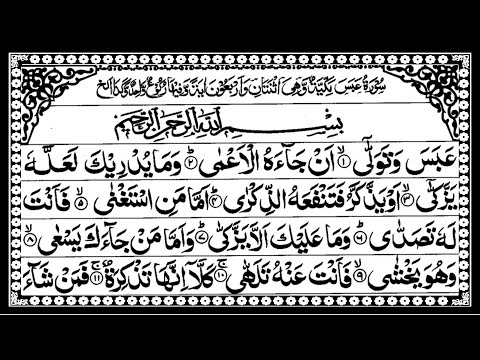 سُوْرَةُ عَبَسَ مَكِّيَّةٌ وَّهِىَ اثْنَتَانِ وَاَرْبَعُوْنَ اٰيَةً وَّفِيْهَا رُكُوْعٌ وَّاحِدٌ
بِسْمِ اللّٰهِ الرَّحْمٰنِ الرَّحِيْمِ
عَبَسَ وَتَوَلّٰٓىۙ ﴿۱﴾ اَنْ جَآءَهُ الْاَعْمٰىؕ ﴿۲﴾ وَمَا يُدْرِيْكَ لَعَلَّهٗ
يَزَّكّٰٓىۙ ﴿۳﴾ اَوْ يَذَّكَّرُ فَتَنْفَعَهُ الذِّكْرٰىؕ ﴿۴﴾ اَمَّا مَنِ اسْتَغْنٰىۙ ﴿۵﴾ فَاَنْتَ
لَهٗ تَصَدّٰىؕ ﴿۶﴾ وَمَا عَلَيْكَ اَلَّا يَزَّكّٰىؕ ﴿۷﴾ وَاَمَّا مَنْ جَآءَكَ يَسْعٰىۙ ﴿۸﴾
وَهُوَ يَخْشٰىۙ ﴿۹﴾ فَاَنْتَ عَنْهُ تَلَهّٰىۚ ﴿۱۰﴾ كَلَّاۤ اِنَّهَا تَذْكِرَةٌۚ ﴿۱۱﴾ فَمَنْ شَآءَ